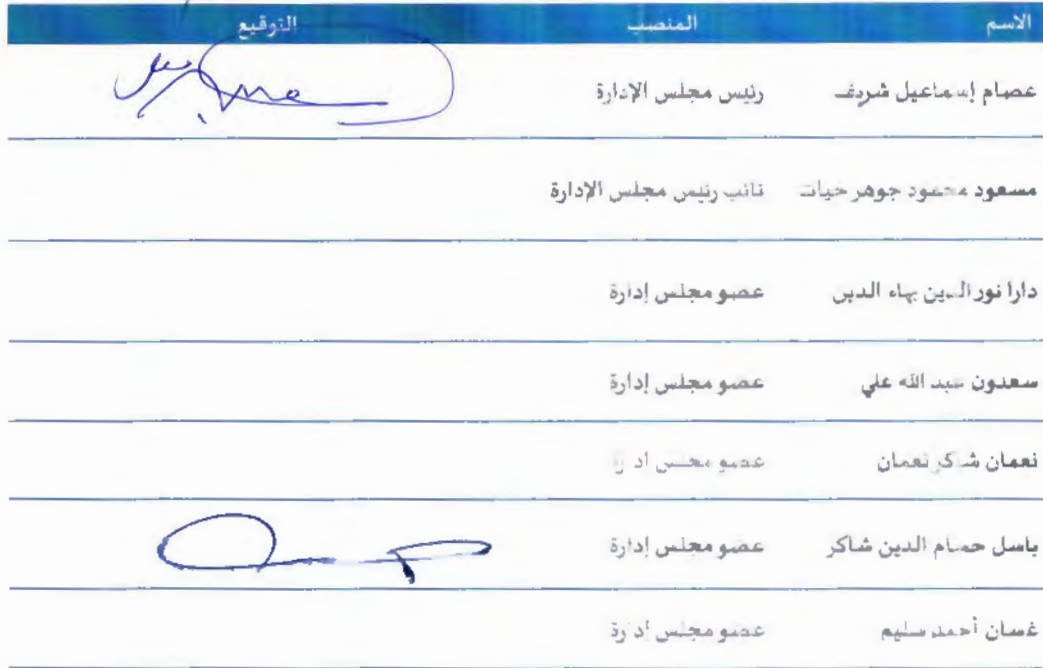 الاسم المنصب التوقيع
عصام إسماعيل شريف رئيس مجلس الإدارة
مسعود محمود جوهر حيات نائب رئيس مجلس الإدارة
دارا نور الدين بهاء الدين عضو مجلس إدارة
سعدون عبد الله علي عضو مجلس إدارة
نعمان شاكر نعمان عضو مجلس ادارة
باسل حسام الدين شاكر عضو مجلس إدارة
غسان أحمد سليم عضو مجلس ادارة